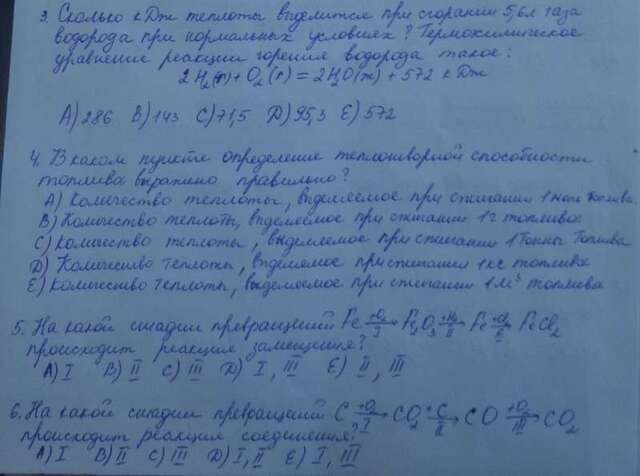 3. Сколько кДж теплоты выделится при сгорании 5,6л газа
водорода при нормальных условиях? Термохимическое
уравнение реакции горения водорода такое:
2H₂(г)+O₂(г)=2H₂O(ж)+572 кДж
A) 286 B) 143 C) 71,5 D) 95,3 E) 572
4. В каком пункте определение теплотворной способности
топлива выражено правильно?
A) Количество теплоты, выделяемое при сжигании 1 моль топлива.
B) Количество теплоты, выделяемое при сжигании 1г топлива
C) Количество теплоты, выделяемое при сжигании 1 тонны топлива
D) Количество теплоты, выделяемое при сжигании 1кг топлива
E) Количество теплоты, выделяемое при сжигании 1м³ топлива
5. На какой стадии превращений Fe +O₂→ I Fe₂O₃ +H₂→ II Fe +Cl₂→ FeCl₂
происходит реакция замещения?
A) I B) II C) III D) I, III E) II, III
6. На какой стадии превращений C +O₂→ I CO₂ +C→ II CO +O₂→ III CO₂
происходит реакция соединения?
A) I B) II C) III D) I, II E) I, III